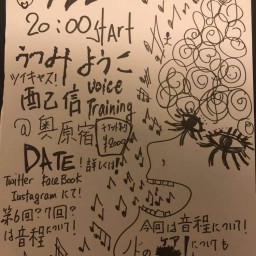 20:00 start
うつみようこ
ツイキャス!
配信 Voice Training
@奥原宿
チケットあり
¥2000
DATE! 詳しくは
Twitter FaceBook
Instagramにて!
第6回?7回?
は音程について!
今回は音程について!
についても